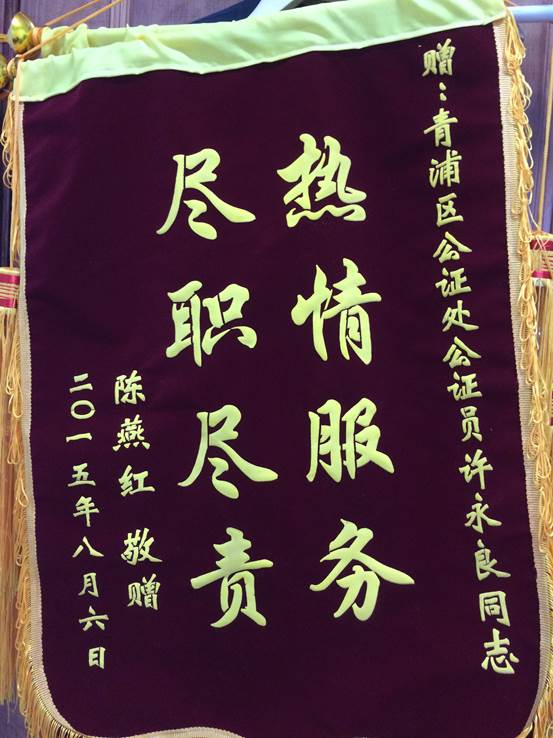 赠：青浦区公证处公证员许永良同志
热情服务
尽职尽责
陈燕红 敬赠
二〇一五年八月六日